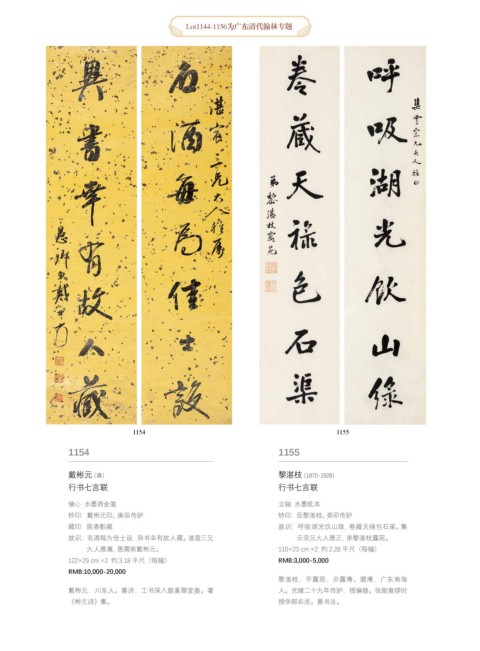 Lot1144-1156为广东清代翰林专题
名酒每为佳士设
异书幸有故人藏
呼吸湖光饮山绿
卷藏天禄包石渠
1154
1155
1154
戴彬元（清）
行书七言联
镜心 水墨洒金笺
钤印：戴彬元印、庚辰传胪
藏印：陈斋影藏
款识：名酒每为佳士设，异书幸有故人藏。湛霓三兄
大人雅属，愚卿弟戴彬元。
122×29 cm.×2 约 3.18 平尺（每幅）
RMB:10,000-20,000
戴彬元，川东人。善诗，工书深入颜真卿堂奥。著
《彬元诗》集。
1155
黎湛枝（1870-1928）
行书七言联
立轴 水墨纸本
钤印：臣黎湛枝、癸卯传胪
款识：呼吸湖光饮山绿，卷藏天禄包石渠。集
云宗兄大人雅正，弟黎湛枝露苑。
110×23 cm.×2 约 2.28 平尺（每幅）
RMB:3,000-5,000
黎湛枝，字露苑，广东南海
人。光绪二十九年传胪，授编修。
授学部右丞。善书法。